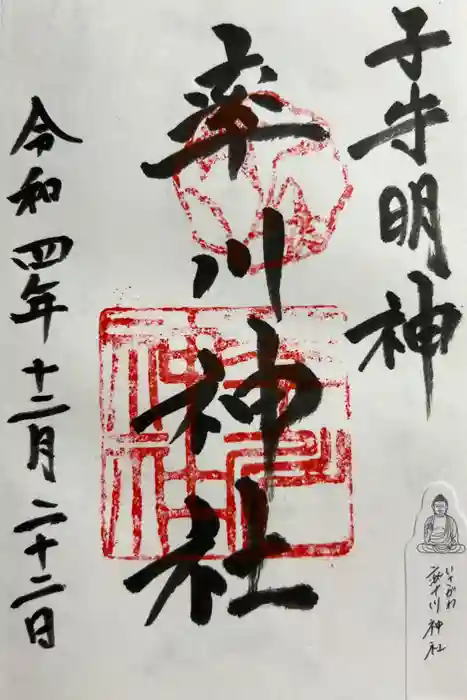 子守明神
率川神社
令和四年十二月二十二日
いさがわ
率川神社